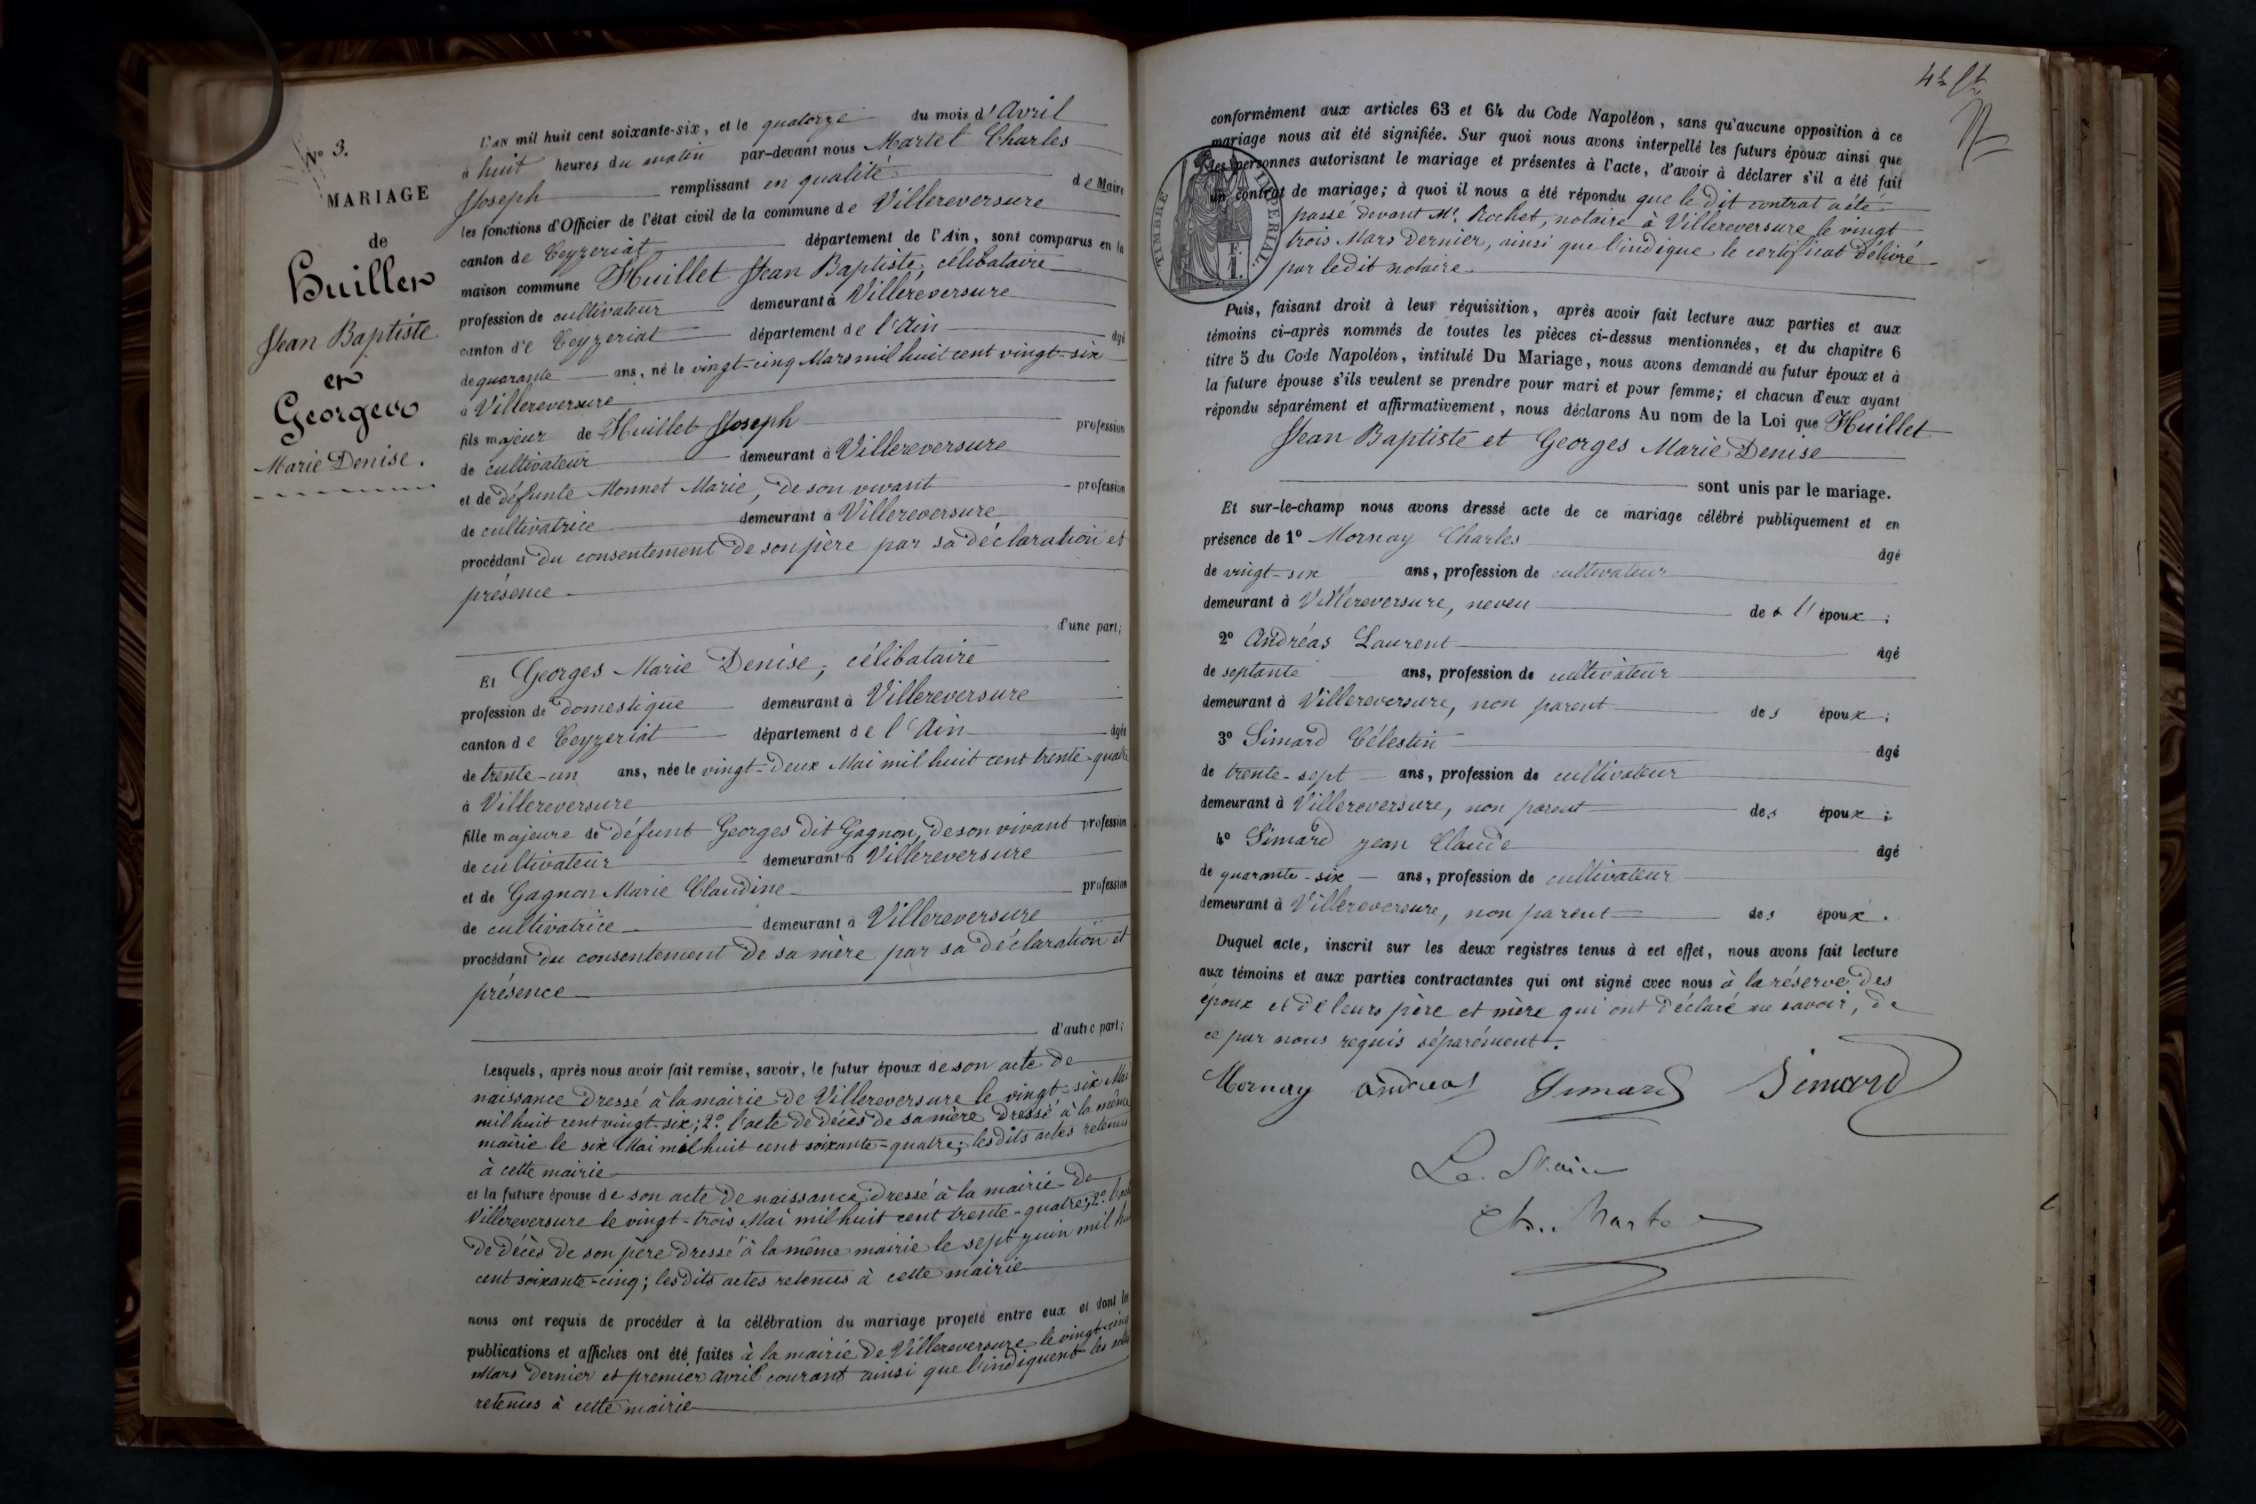 N° 3.
MARIAGE
de
Huillet
Jean Baptiste
et
Georges
Marie Denise.
L'an mil huit cent soixante-six, et le quatorze du mois d'Avril
à huit heures du matin par-devant nous Martel Charles
Joseph remplissant en qualité de Maire
les fonctions d'Officier de l'état civil de la commune de Villereversure
canton de Ceyzeriat département de l'Ain, sont comparus en la
maison commune Huillet Jean Baptiste, célibataire
profession de cultivateur demeurant à Villereversure
canton de Ceyzeriat département de l'Ain âgé
de quarante ans, né le vingt-cinq Mars mil huit cent vingt-six
à Villereversure
fils majeur de Huillet Joseph profession
de cultivateur demeurant à Villereversure
et de défunte Monnet Marie, de son vivant profession
de cultivatrice demeurant à Villereversure
procédant du consentement de son père par sa déclaration et
présence
d'une part;
Et Georges Marie Denise, célibataire
profession de domestique demeurant à Villereversure
canton de Ceyzeriat département de l'Ain âgée
de trente-un ans, née le vingt-deux Mai mil huit cent trente-quatre
à Villereversure
fille majeure de défunt Georges dit Gagnon, de son vivant profession
de cultivateur demeurant à Villereversure
et de Gagnon Marie Claudine profession
de cultivatrice demeurant à Villereversure
procédant du consentement de sa mère par sa déclaration et
présence
d'autre part;
Lesquels, après nous avoir fait remise, savoir, le futur époux de son acte de
naissance dressé à la mairie de Villereversure le vingt-six Mars
mil huit cent vingt-six; 2° l'acte de décès de sa mère dressé à la même
mairie le six Mai mil huit cent soixante-quatre; lesdits actes retenus
à cette mairie
et la future épouse de son acte de naissance dressé à la mairie de
Villereversure le vingt-trois Mai mil huit cent trente-quatre; 2° l'acte
de décès de son père dressé à la même mairie le sept juin mil huit
cent soixante-cinq; lesdits actes retenus à cette mairie
nous ont requis de procéder à la célébration du mariage projeté entre eux et dont les
publications et affiches ont été faites à la mairie de Villereversure le vingt-cinq
Mars dernier et premier avril courant ainsi que l'indiquent les
retenues à cette mairie
conformément aux articles 63 et 64 du Code Napoléon, sans qu'aucune opposition à ce
mariage nous ait été signifiée. Sur quoi nous avons interpellé les futurs époux ainsi que
les personnes autorisant le mariage et présentes à l'acte, d'avoir à déclarer s'il a été fait
un contrat de mariage; à quoi il nous a été répondu que le dit contrat a été
passé devant Me. Rochet, notaire à Villereversure le vingt
trois Mars dernier, ainsi que l'indique le certificat délivré
par ledit notaire
TIMBRE IMPERIAL
F.
1.
Puis, faisant droit à leur réquisition, après avoir fait lecture aux parties et aux
témoins ci-après nommés de toutes les pièces ci-dessus mentionnées, et du chapitre 6
titre 5 du Code Napoléon, intitulé Du Mariage, nous avons demandé au futur époux et à
la future épouse s'ils veulent se prendre pour mari et pour femme; et chacun d'eux ayant
répondu séparément et affirmativement, nous déclarons Au nom de la Loi que Huillet
Jean Baptiste et Georges Marie Denise
sont unis par le mariage.
Et sur-le-champ nous avons dressé acte de ce mariage célébré publiquement et en
présence de 1° Mornay Charles âgé
de vingt-six ans, profession de cultivateur
demeurant à Villereversure, neveu de l'époux;
2° Andréas Laurent âgé
de septante ans, profession de cultivateur
demeurant à Villereversure, non parent des époux;
3° Simard Célestin âgé
de trente-sept ans, profession de cultivateur
demeurant à Villereversure, non parent des époux;
4° Simard jean Claude âgé
de quarante-six ans, profession de cultivateur
demeurant à Villereversure, non parent des époux.
Duquel acte, inscrit sur les deux registres tenus à cet effet, nous avons fait lecture
aux témoins et aux parties contractantes qui ont signé avec nous à la réserve des
époux et de leurs père et mère qui ont déclaré ne savoir, de
ce par nous requis séparément.
Mornay andreas Simard Simard
Le Maire
Ch. Martel